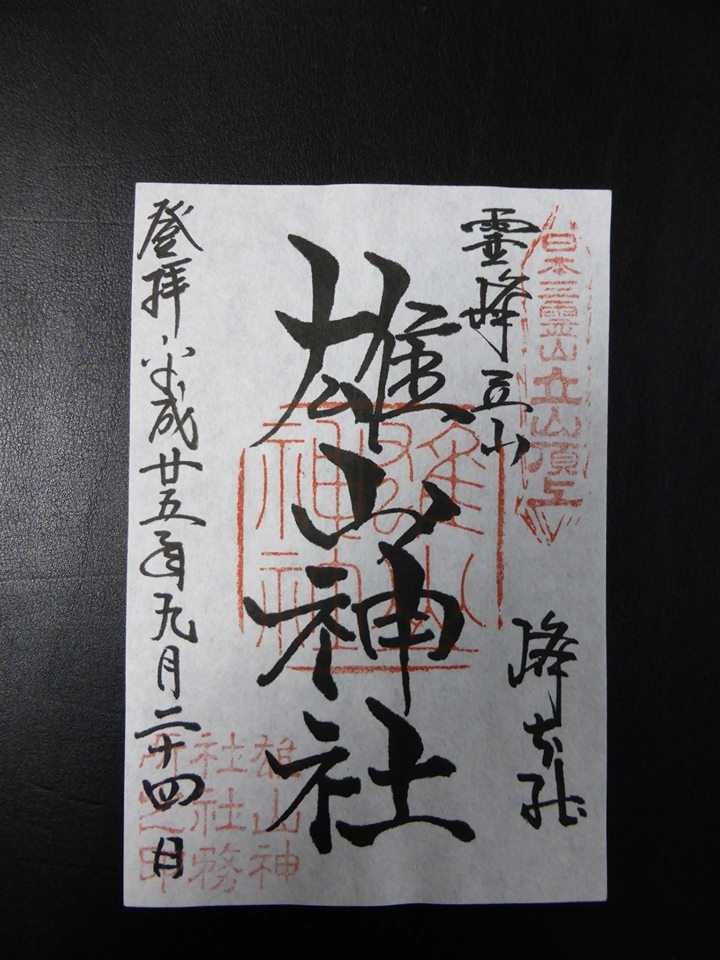 日本三霊山立山頂上
霊峰立山
峰本社
雄山神社
雄山
神社
登拝 平成廿五年九月二十四日
雄山神
社社務
所之印